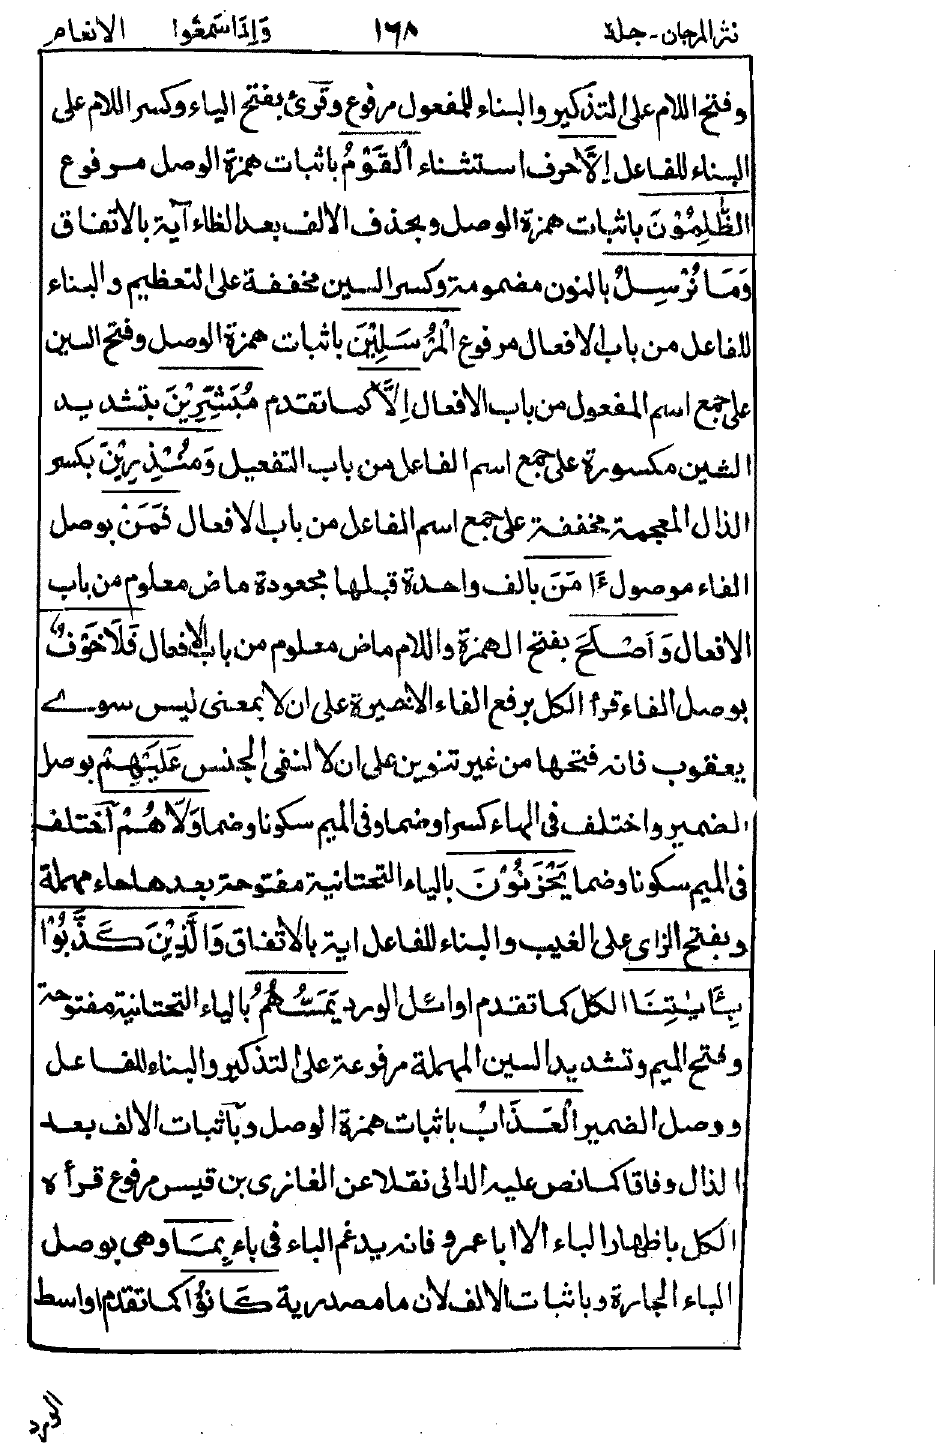 نثر المرجان - جلد ١٦٨ وَإِذَا سَمِعُوا الانعام
وفتح اللام على التذكير والبناء للمفعول مرفوع وقرئ بفتح الياء وكسر اللام على
البناء للفاعل اِلَّا حرف استثناء الْقَوْمُ باثبات همزة الوصل مرفوع
الظّٰلِمُوْنَ باثبات همزة الوصل وبحذف الالف بعد الظاء آية بالاتفاق
وَمَا نُرْسِلُ بالنون مضمومة وكسر السين مخففة على التعظيم والبناء
للفاعل من باب الافعال مرفوع الْمُرْسَلِيْنَ باثبات همزة الوصل وفتح السين
على جمع اسم المفعول من باب الافعال اِلَّا كما تقدم مُبَشِّرِيْنَ بتشديد
الشين مكسورة على جمع اسم الفاعل من باب التفعيل وَمُنْذِرِيْنَ بكسر
الذال المعجمة مخففة على جمع اسم الفاعل من باب الافعال فَمَنْ بوصل
الفاء موصول ءَامَنَ بالف واحدة قبلها مجعودة ماض معلوم من باب
الافعال وَاَصْلَحَ بفتح الهمزة واللام ماض معلوم من باب الافعال فَلَا خَوْفٌ
بوصل الفاء قرأ الكل برفع الفاء الاخيرة على ان لا بمعنى ليس سوے
يعقوب فانه فتحها من غير تنوين على ان لا لنفى الجنس عَلَيْهِمْ بوصل
الضمير واختلف فى الهاء كسرا وضما وفى الميم سكونا وضما وَلَا هُمْ اختلف
فى الميم سكونا وضما يَحْزَنُوْنَ بالياء التحتانية مفتوحة بعدها حاء مهملة
وبفتح الزاى على الغيب والبناء للفاعل اية بالاتفاق وَالَّذِيْنَ كَذَّبُوْا
بِـَٔايٰتِنَا الكل كما تقدم اوائل الورد يَمَسُّهُمُ بالياء التحتانية مفتوحة
وفتح الميم وتشديد السين المهملة مرفوعة على التذكير والبناء للفاعل
ووصل الضمير الْعَذَابُ باثبات همزة الوصل وباثبات الالف بعد
الذال وفاقا كما نص عليه الدانى نقلا عن الغازى بن قيس مرفوع قرأه
الكل باظهار الباء الا ابا عمرو فانه يدغم الباء فى باء بِمَا وهى بوصل
الباء الجارة وباثبات الالف لان ما مصدرية كَانُوْا كما تقدم اواسط
الورد